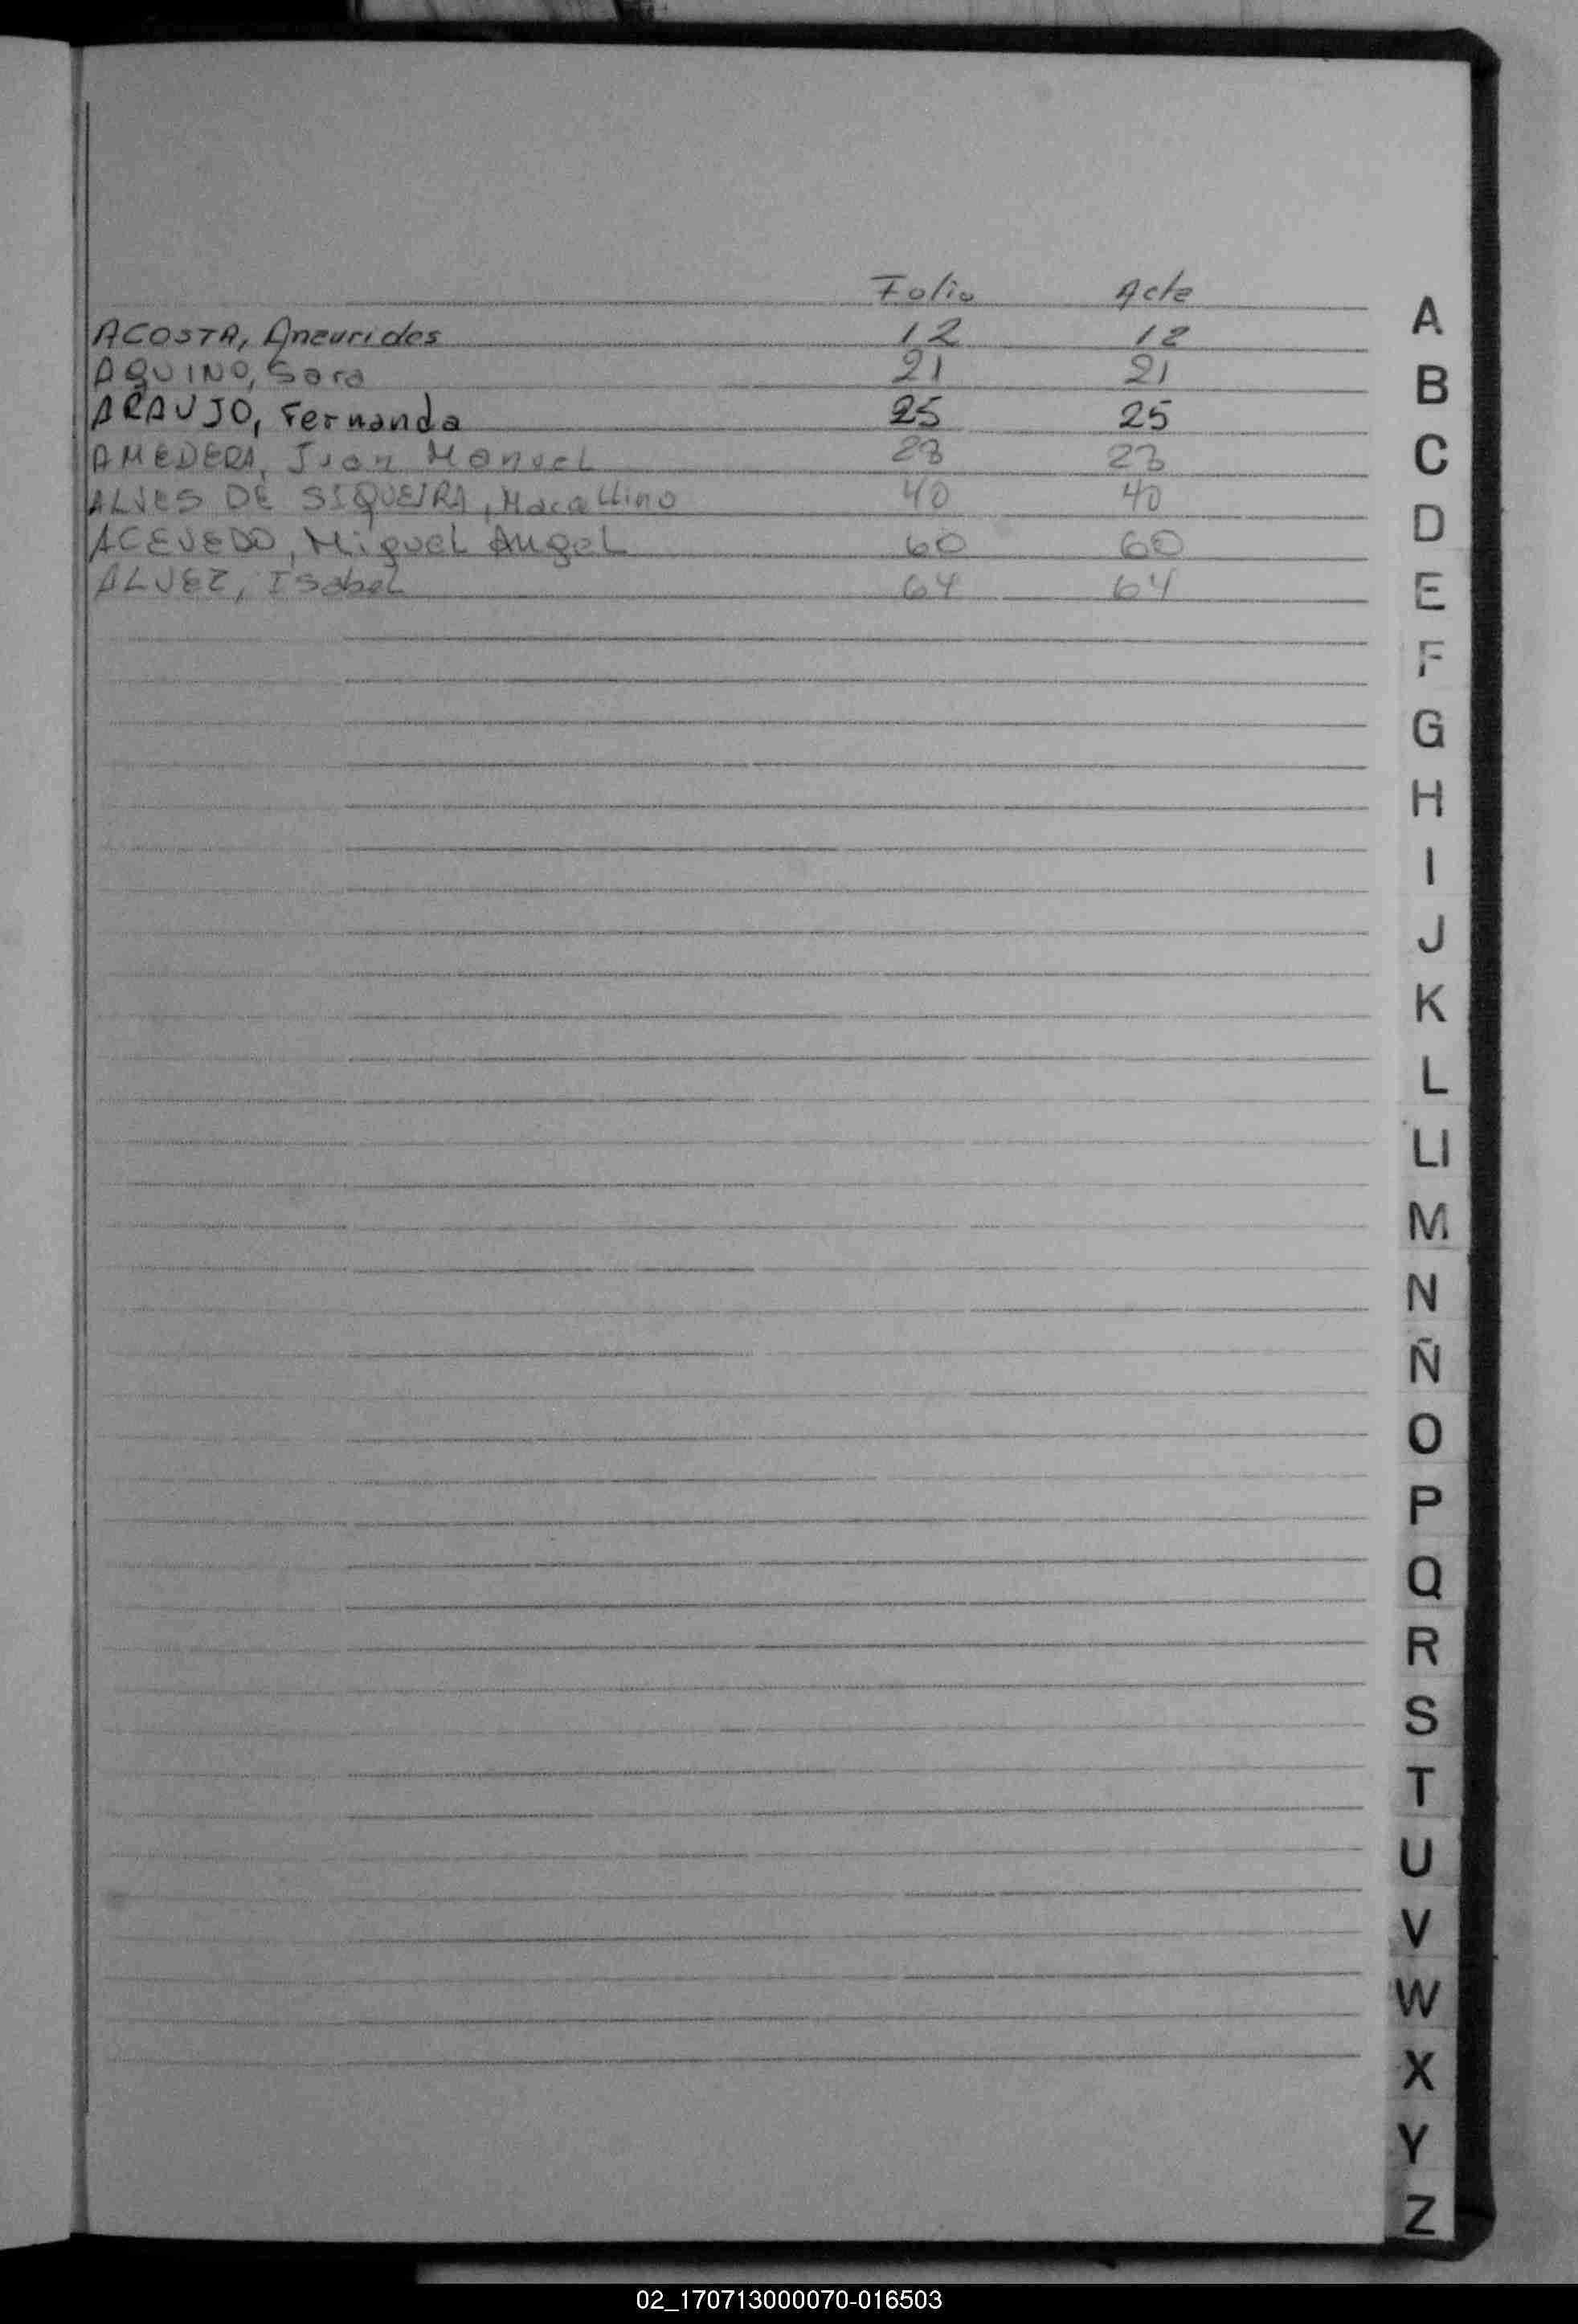 Folio Acta
A
ACOSTA, Aneurides 12 12
AQUINO, Sara 21 21
B
ARAUJO, Fernanda 25 25
AMEDERA, Juan Manuel
C
ALVES DE SIQUEIRA, 40 40
D
ACEVEDO, Miguel Angel 60 60
ALVEZ, Isabel 64 64
E
F
G
H
I
J
K
L
Ll
M
N
Ñ
O
P
Q
R
S
T
U
V
W
X
Y
Z
02_170713000070-016503